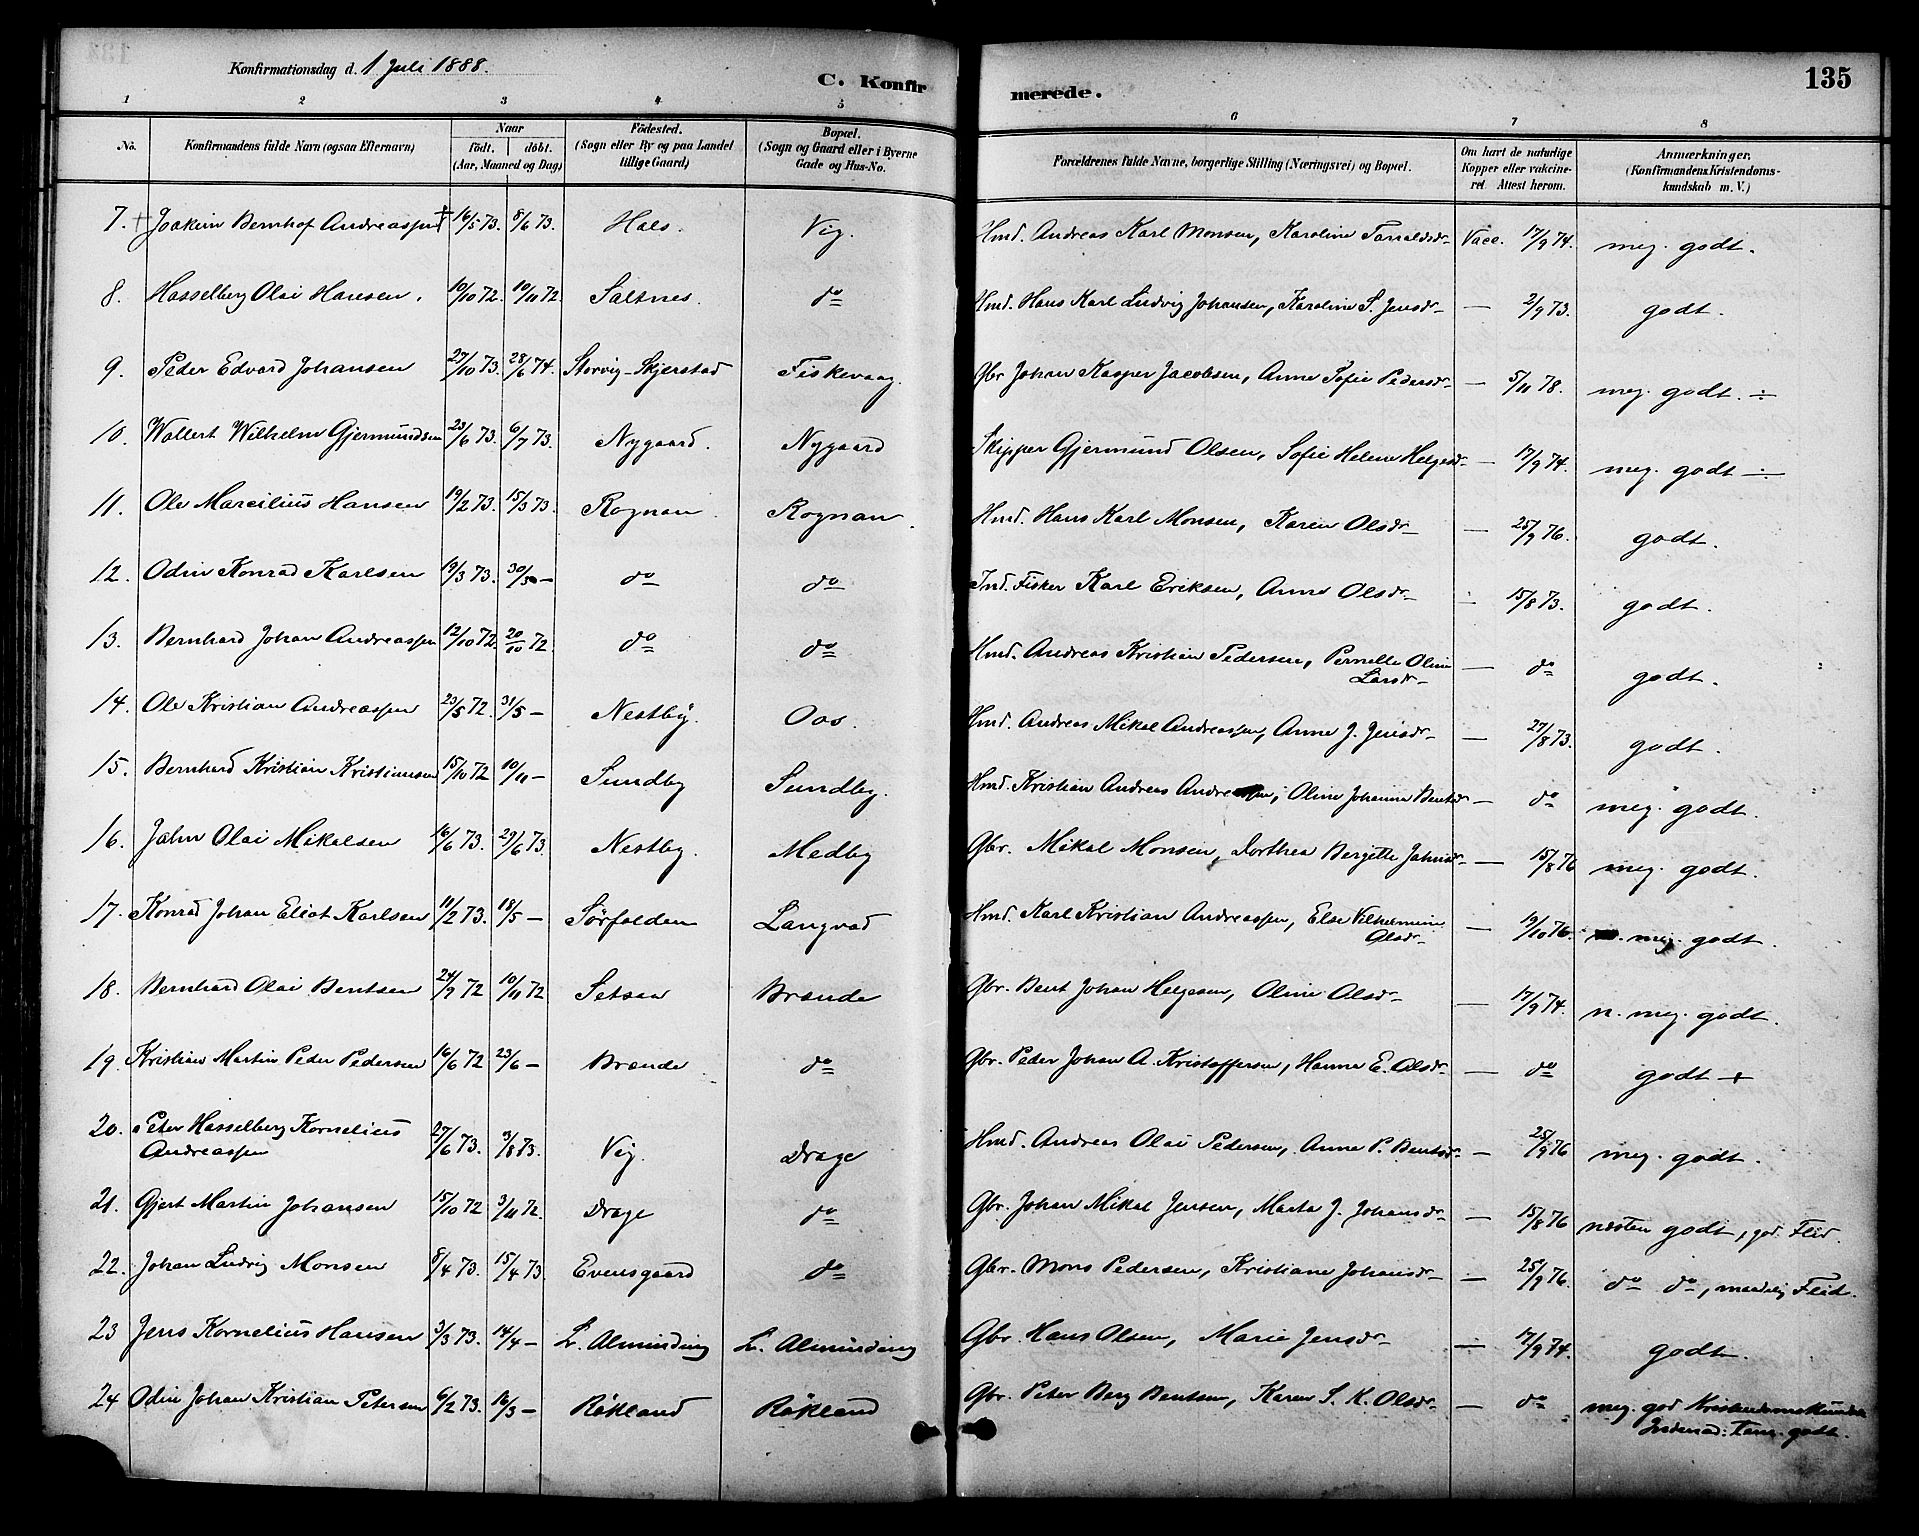 Konfirmationsdag d. 1 Juli 1888.
C. Konfirmerede.
135
1 2 3 4 5 6 7 8
No. Konfirmandens fulde Navn (ogsaa Efternavn) Naar født. døbt. (Aar, Maaned og Dag) Fødested. (Sogn eller By og paa Landet tillige Gaard) Bopæl. (Sogn og Gaard eller i Byerne Gade og Hus-No. Forældrenes fulde Navne, borgerlige Stilling (Næringsvei) og Bopæl. Om havt de naturlige Kopper eller vakcineret. Attest herom. Anmærkninger. (Konfirmandens Kristendomskundskab m. V.)
7. + Joakim Bernhof Andreassen + 16/5 73. 8/6 73. Hals. Vig. Hmd. Andreas Karl Monsen, Karoline Tarraldsdr Vacc. 17/9 74. meg. godt.
8. Hasselberg Olai Hansen. 10/10 72. 10/11 72. Saltnes. do Hmd. Hans Karl Ludvig Johansen, Karoline S. Jensdr — 2/9 73. godt.
9. Peder Edvard Johansen 27/10 73. 28/6 74. Storvig-Skjerstad Fiskevaag. Gbr. Johan Kasper Jacobsen, Anne Sofie Pedersdr — 5/11 78. meg. godt. ÷
10. Wallert Wilhelm Gjermundsen 23/6 73. 6/7 73. Nygaard. Nygaard Skipper Gjermund Olsen, Sofie Helene Helgesdr — 17/9 74. meg. godt ÷
11. Ole Marcilius Hansen 19/2 73. 15/3 73. Rognan. Rognan. Hmd. Hans Karl Monsen, Karen Olsdr — 25/9 76. godt.
12. Odin Konrad Karlsen 19/3 73. 30/3 — do do Ind. Fisker Karl Eriksen, Anne Olsdr — 15/8 73. godt.
13. Bernhard Johan Andreassen 12/10 72. 20/10 72. do do Hmd. Andreas Kristian Pedersen, Pernelle Oline Larsdr — do godt.
14. Ole Kristian Andreassen 23/5 72. 31/5 — Nestby. Oas. Hmd. Andreas Mikal Andreassen, Anne J. Jensdr — 27/8 73. godt.
15. Bernhard Kristian Kristiansen 15/10 72 10/11 — Sundby Sundby. Hmd. Kristian Andreas Andreassen, Oline Johanna Bentsdr — do meg. godt.
16. Jahn Olai Mikalsen 16/6 73. 29/6 73. Nestby. Medby Gbr. Mikal Monsen, Dorthea Bergette Jahnsdr — 15/8 76 meg. godt.
17. Konrad Johan Eliot Karlsen 11/2 73. 18/5 — Sørfolden Langvad Hmd. Karl Kristian Andreassen, Else Vilhelmine Olsdr — 19/10 76. meg. godt.
18. Bernhard Olai Bentsen 24/9 72 10/11 72 Setsaa Brænde Gbr. Bent Johan Helgesen, Oline Olsdr — 17/9 74. n. meg. godt.
19. Kristian Martin Peder Pedersen 16/6 72 23/6 — Brænde do Gbr. Peder Johan A. Kristoffersen, Hanna E. Olsdr — do godt +
20. Peter Hasselberg Kornelius Andreassen 27/6 73. 3/8 73. Vig. Drage Hmd. Andreas Olai Pedersen, Anne P. Bentsdr — 25/9 76 meg. godt.
21. Gjert Martin Johansen 15/10 72 3/11 72. Drage do Gbr. Johan Mikal Jensen, Marta J. Johansdr — 15/8 76 næsten godt, god. Flid.
22. Johan Ludvig Monsen 8/4 73. 15/4 73. Evensgaard do Gbr. Mons Pedersen, Kristiane Johansdr — 25/9 76. do do, maadelig Flid.
23 Jens Kornelius Hansen 3/3 73. 14/4 — L. Alminding L. Alminding Gbr. Hans Olsen, Marie Jensdr — 17/9 74. godt.
24 Odin Johan Kristian Petersen 6/2 73. 16/3 — Røkland Røkland Gbr. Peter Berg Bentsen, Karen S. K. Olsdr — do meg. god Kristendomskundsk
godt.